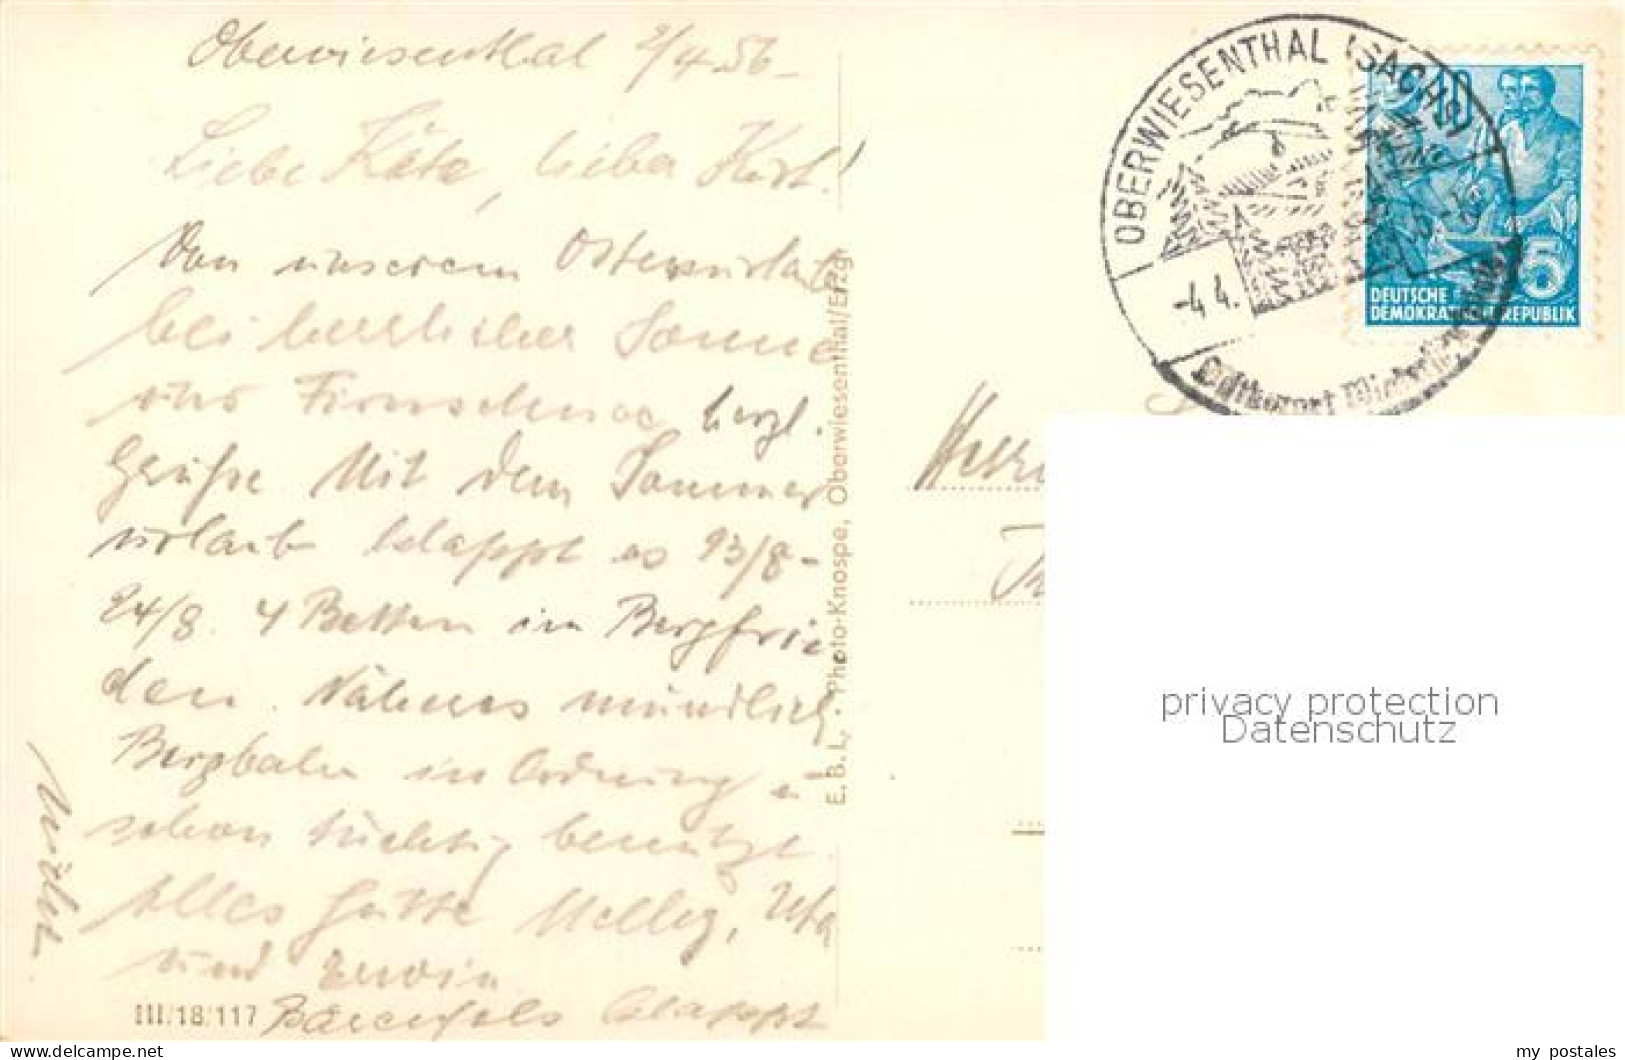 Oberwiesenthal 2/4 56
Liebe Käte, lieber Kurt!
Von unserem Osterurlaub
bei herrlicher Sonne
und Firnschnee herzl.
Grüße Mit dem Sommer
urlaub klappt es 13/8 -
24/8. 4 Betten im Bergfrie
den. Näheres mündlich
Bergbahn in Ordnung u
schon tüchtig benützt.
Alles Gute Melly, Uta
und Erwin
Bärenfels klappt
III/18/117
E. B. L. Photo-Knospe, Oberwiesenthal/Erzgb
OBERWIESENTHAL (SACHS)
-4 4.
Luftkurort
10
5
DEUTSCHE
DEMOKRATISCHE REPUBLIK
privacy protection
Datenschutz
https://www.delcampe.net
my_postales